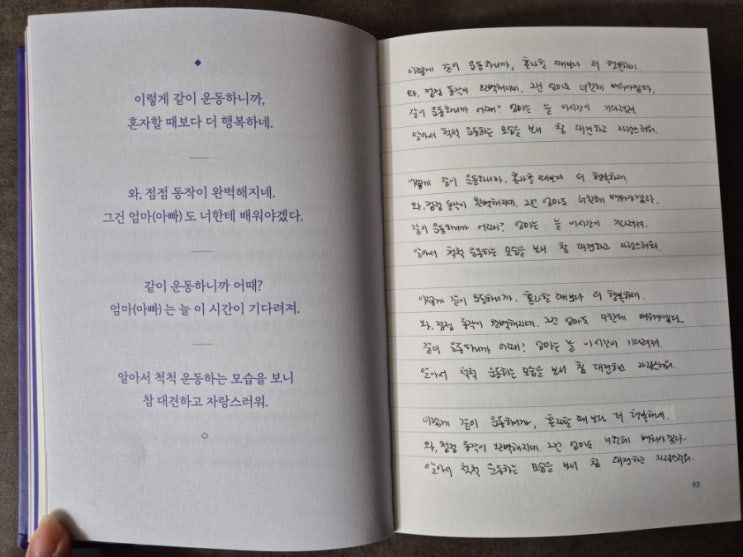 이렇게 같이 운동하니까,
혼자할 때보다 더 행복하네.
와, 점점 동작이 완벽해지네.
그건 엄마(아빠)도 너한테 배워야겠다.
같이 운동하니까 어때?
엄마(아빠)는 늘 이 시간이 기다려져.
알아서 척척 운동하는 모습을 보니
참 대견하고 자랑스러워.
이렇게 같이 운동하니까, 혼자할 때보다 더 행복하네.
와, 점점 동작이 완벽해지네. 그건 엄마도 너한테 배워야겠다.
같이 운동하니까 어때? 엄마는 늘 이 시간이 기다려져.
알아서 척척 운동하는 모습을 보니 참 대견하고 자랑스러워.
이렇게 같이 운동하니까, 혼자할 때보다 더 행복하네.
와, 점점 동작이 완벽해지네. 그건 엄마도 너한테 배워야겠다.
같이 운동하니까 어때? 엄마는 늘 이 시간이 기다려져.
알아서 척척 운동하는 모습을 보니 참 대견하고 자랑스러워.
이렇게 같이 운동하니까, 혼자할 때보다 더 행복하네.
와, 점점 동작이 완벽해지네. 그건 엄마도 너한테 배워야겠다.
같이 운동하니까 어때? 엄마는 늘 이 시간이 기다려져.
알아서 척척 운동하는 모습을 보니 참 대견하고 자랑스러워.
이렇게 같이 운동하니까, 혼자할 때보다 더 행복하네.
와, 점점 동작이 완벽해지네. 그건 엄마도 너한테 배워야겠다.
알아서 척척 운동하는 모습을 보니 참 대견하고 자랑스러워.
93